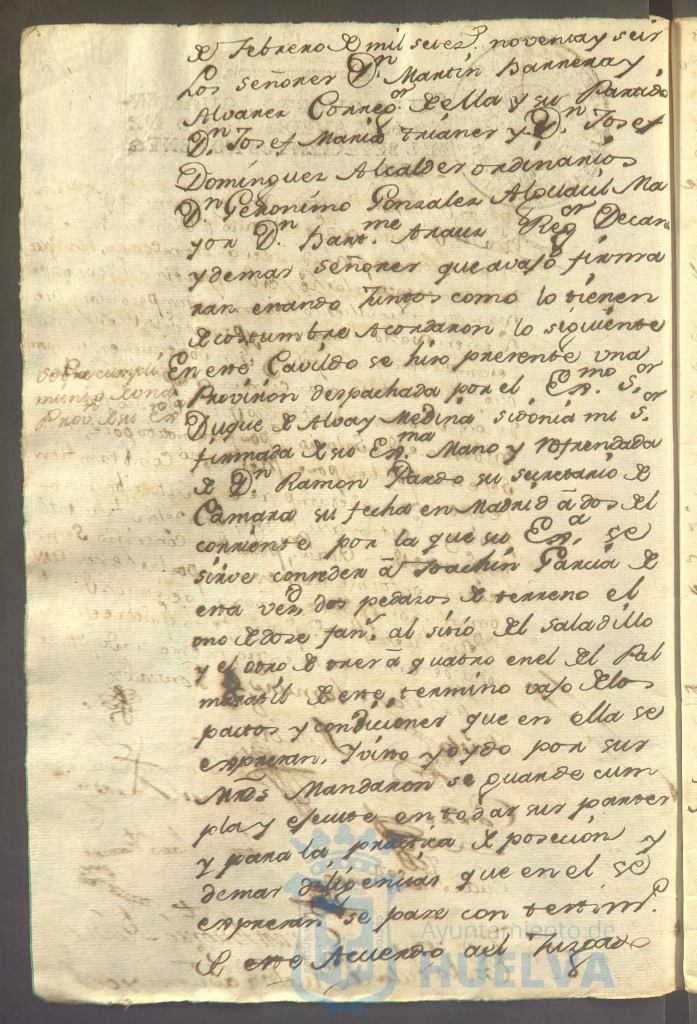 de Febrero de mil setez.s noventa y seis
Los señores Dn. Martin Barrera y
Alvarez Correg.or de ella y su Partido
Dn. Josef Maria Trianes y Dn. Josef
Dominguez Alcaldes ordinarios
Dn. Geronimo Gonzalez Alguacil Ma
yor Dn. Bart.me Arauz Reg.or Decan
y demas señores que avajo firma
ran estando Juntos como lo tienen
de costumbre Acordaron lo siguiente
En este Cavildo se hiso presente una
Provision despachada por el Ex.mo S.or
Duque de Alva y Medina Sidonia mi S.or
firmada de su Ex.ma Mano y refrendada
de Dn. Ramon Pardo su secretario de
Camara su fecha en Madrid á dos del
corriente por la que su Ex.a se
sirve conseder á Joachin Garcia de
esta vez.d dos pedazos de terreno el
uno de dose fan.s al sitio del Saladillo
y el otro de tres á quatro en el del Pal
matil de este termino vajo de los
pactos y condiciones que en ella se
expresan, Y visto y oydo por sus
Mrds Mandaron se guarde cum
pla y efecute en todas sus partes
y para la practica de posecion y
demas diligencias que en el se
expresan se pase con testim.o
de este Acuerdo al Juzgado
sobre cumpli
miento de una
Prov.n de su Ex.a
Ayuntamiento de
HUELVA